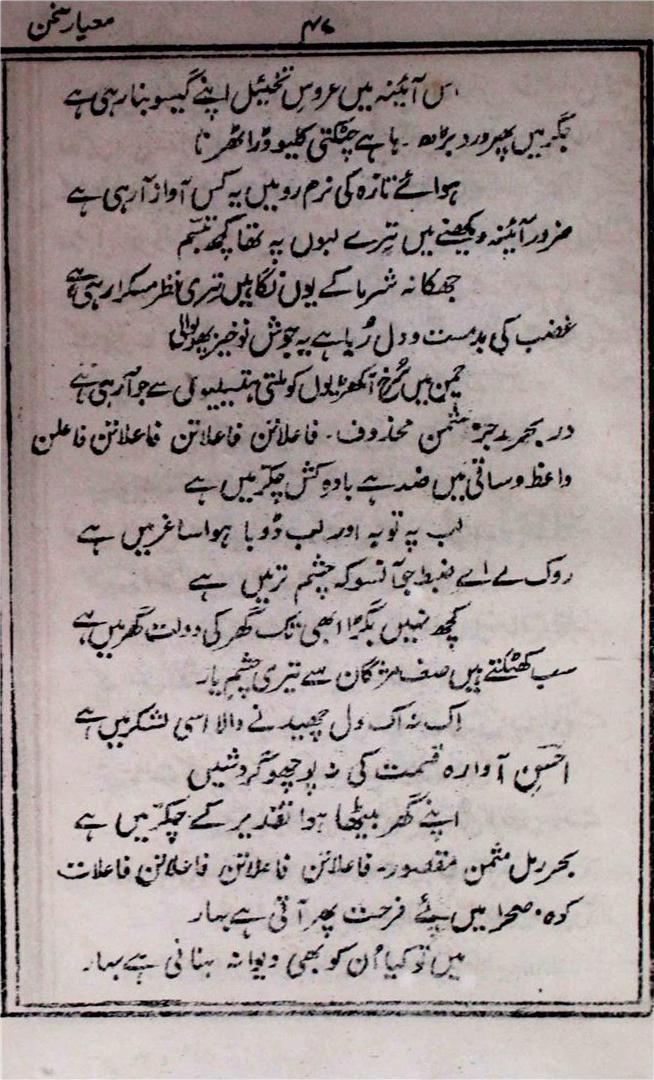 معیار سخن
۴۷
اس آئینہ میں عروسِ تخیّل اپنے گیسو بنا رہی ہے
جگر میں پھر درد بڑھ رہا ہے چٹکتی کلیو ذرا ٹھرنا
ہوائے تازہ کی نرم رو میں یہ کس آواز آرہی ہے
ضرور آئینہ دیکھنے میں ترے لبوں پہ تھا کچھ تبسّم
جھکا نہ شرما کے یوں نگاہیں تری نظر مسکرا رہی ہے
غضب کی بدمست و دل رُبا ہے یہ جوشِ نوخیز پھولوالی
چمن میں سُرخ آنکھڑیوں کو ملتی ہتیلیوں سے جو آرہی ہے
در بحر مثمن محذوف ۔ فاعلاتن فاعلاتن فاعلاتن فاعلن
واعظ و ساقی میں ضد ہے بادہ کش چکّر میں ہے
لب پہ توبہ اور لب ڈوبا ہوا ساغر میں ہے
روک لے اے ضبط جو آنسو کہ چشم تر میں ہے
کچھ نہیں بگڑا ابھی تک گھر کی دولت گھر میں ہے
سب کھٹکتے ہیں صف مژگان سے تیری چشم یار
اک نہ اک دل چھیدنے والا اسی لشکر میں ہے
احسن آوارہ قسمت کی نہ پوچھو گردشیں
اپنے گھر بیٹھا ہوا تقدیر کے چکّر میں ہے
بحر رمل مثمن مقصور۔ فاعلاتن فاعلاتن فاعلاتن فاعلات
کوہ صحرا میں پئے فرحت پھر آتی ہے بہار
میں تو کیا اُن کو بھی دیوانہ بناتی ہے بہار